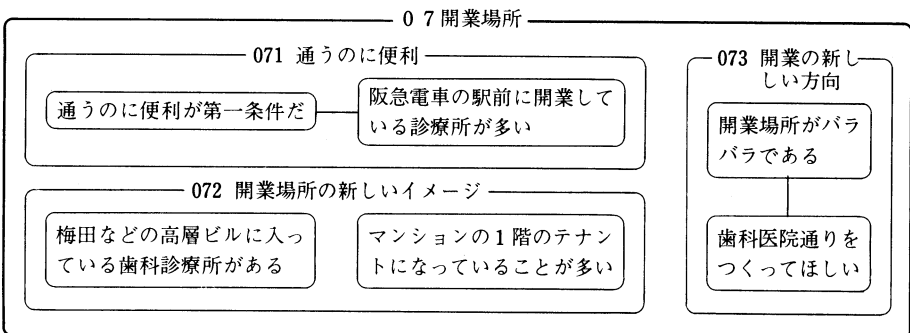 07開業場所
071 通うのに便利
通うのに便利が第一条件だ
阪急電車の駅前に開業して
いる診療所が多い
072 開業場所の新しいイメージ
梅田などの高層ビルに入っ
ている歯科診療所がある
マンションの1階のテナン
トになっていることが多い
073 開業の新し
しい方向
開業場所がバラ
バラである
歯科医院通りを
つくってほしい